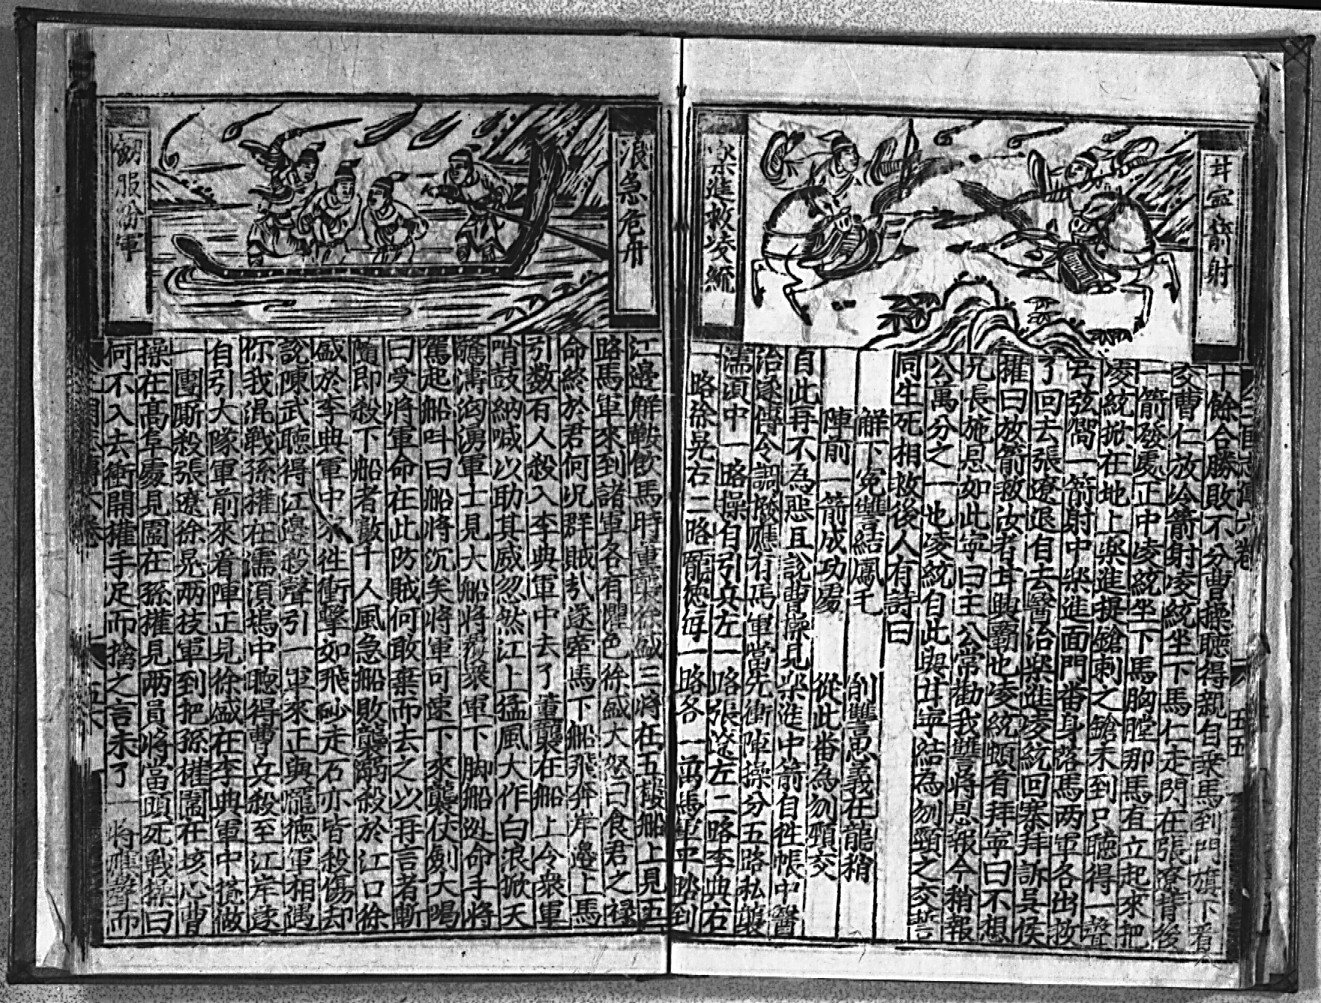 甘寧箭射
樂進救凌統
十餘合勝敗不分曹操聽得親自乗馬到門旗下看
交曹仁放冷箭射凌統坐下馬仁走閃在張遼背後
一箭發處正中凌統坐下馬胸膛那馬直立起來把
凌統抛在地上樂進提鎗刺之鎗未到只聽得一聲
弓弦響一箭射中樂進面門番身落馬两軍各出救
了回去張遼退有去醫治樂進凌統回寨拜訴吴侯
權曰放箭救汝者甘興霸也凌統頓首拜寧曰不想
兄長施恩如此寧曰主公常勸我讐將恩報今稍報
公萬分之一也凌統自此與甘寧結為刎頸之交誓
同生死相救後人有詩曰
解下寃讐結鳳毛
削讐思義在龍稍
陣前一箭成功處
從此番為刎頸交
自此再不為懸且說曹操見樂進中箭自牲帳中醫
治遂傳令調撥應有馬軍當先衝陣操分五路私襲
濡湏中
路操自引兵左一路張遼左二路李典右
一路徐晃右二路龐德每一路各一萬馬軍中踏到
浪急危舟
江邊解鞍飲馬時董襲徐盛三將在五楼船上見五
路馬軍來到諸軍各有懼色徐盛大怒曰食君之禄
命終於君何况群賊乎遂牽馬下船飛奔岸邊上馬
引数百人殺入李典軍中去了董襲在船上令衆軍
哨鼓納喊以助其威忽然江上猛風大作白浪掀天
驚濤洶湧軍士見大船將覆衆軍下脚船逃命手將
駕起船叫曰船將沉矣將軍可速下來襲仗劍大喝
曰受將軍命在此防賊何敢棄而去之以再言者斬
隨即殺下船者數千人風急船敗襲溺殺於江口徐
盛於李典軍中
衝擊如飛砂走石亦皆殺傷却
說陳武聽得江邊殺聲引一軍來正與龐德軍相遇
你我混戰孫權在濡湏塢中聽得曹兵殺至江岸遂
自引大隊軍前來看陣正見徐盛在李典軍中
一團厮殺張遼徐晃两枝軍到把孫權圍在垓心曹
操在髙阜處見圍在孫權見两員將當頭死戰操曰
何不入去衝開權手足而擒之言未了一將應聲而